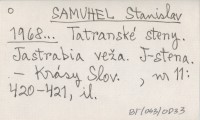 SAMUHEL Stanislav
1968... Tatranské steny.
Jastrabia veža. J-stena.
- Krásy Slov. , nr 11:
420-421, il.